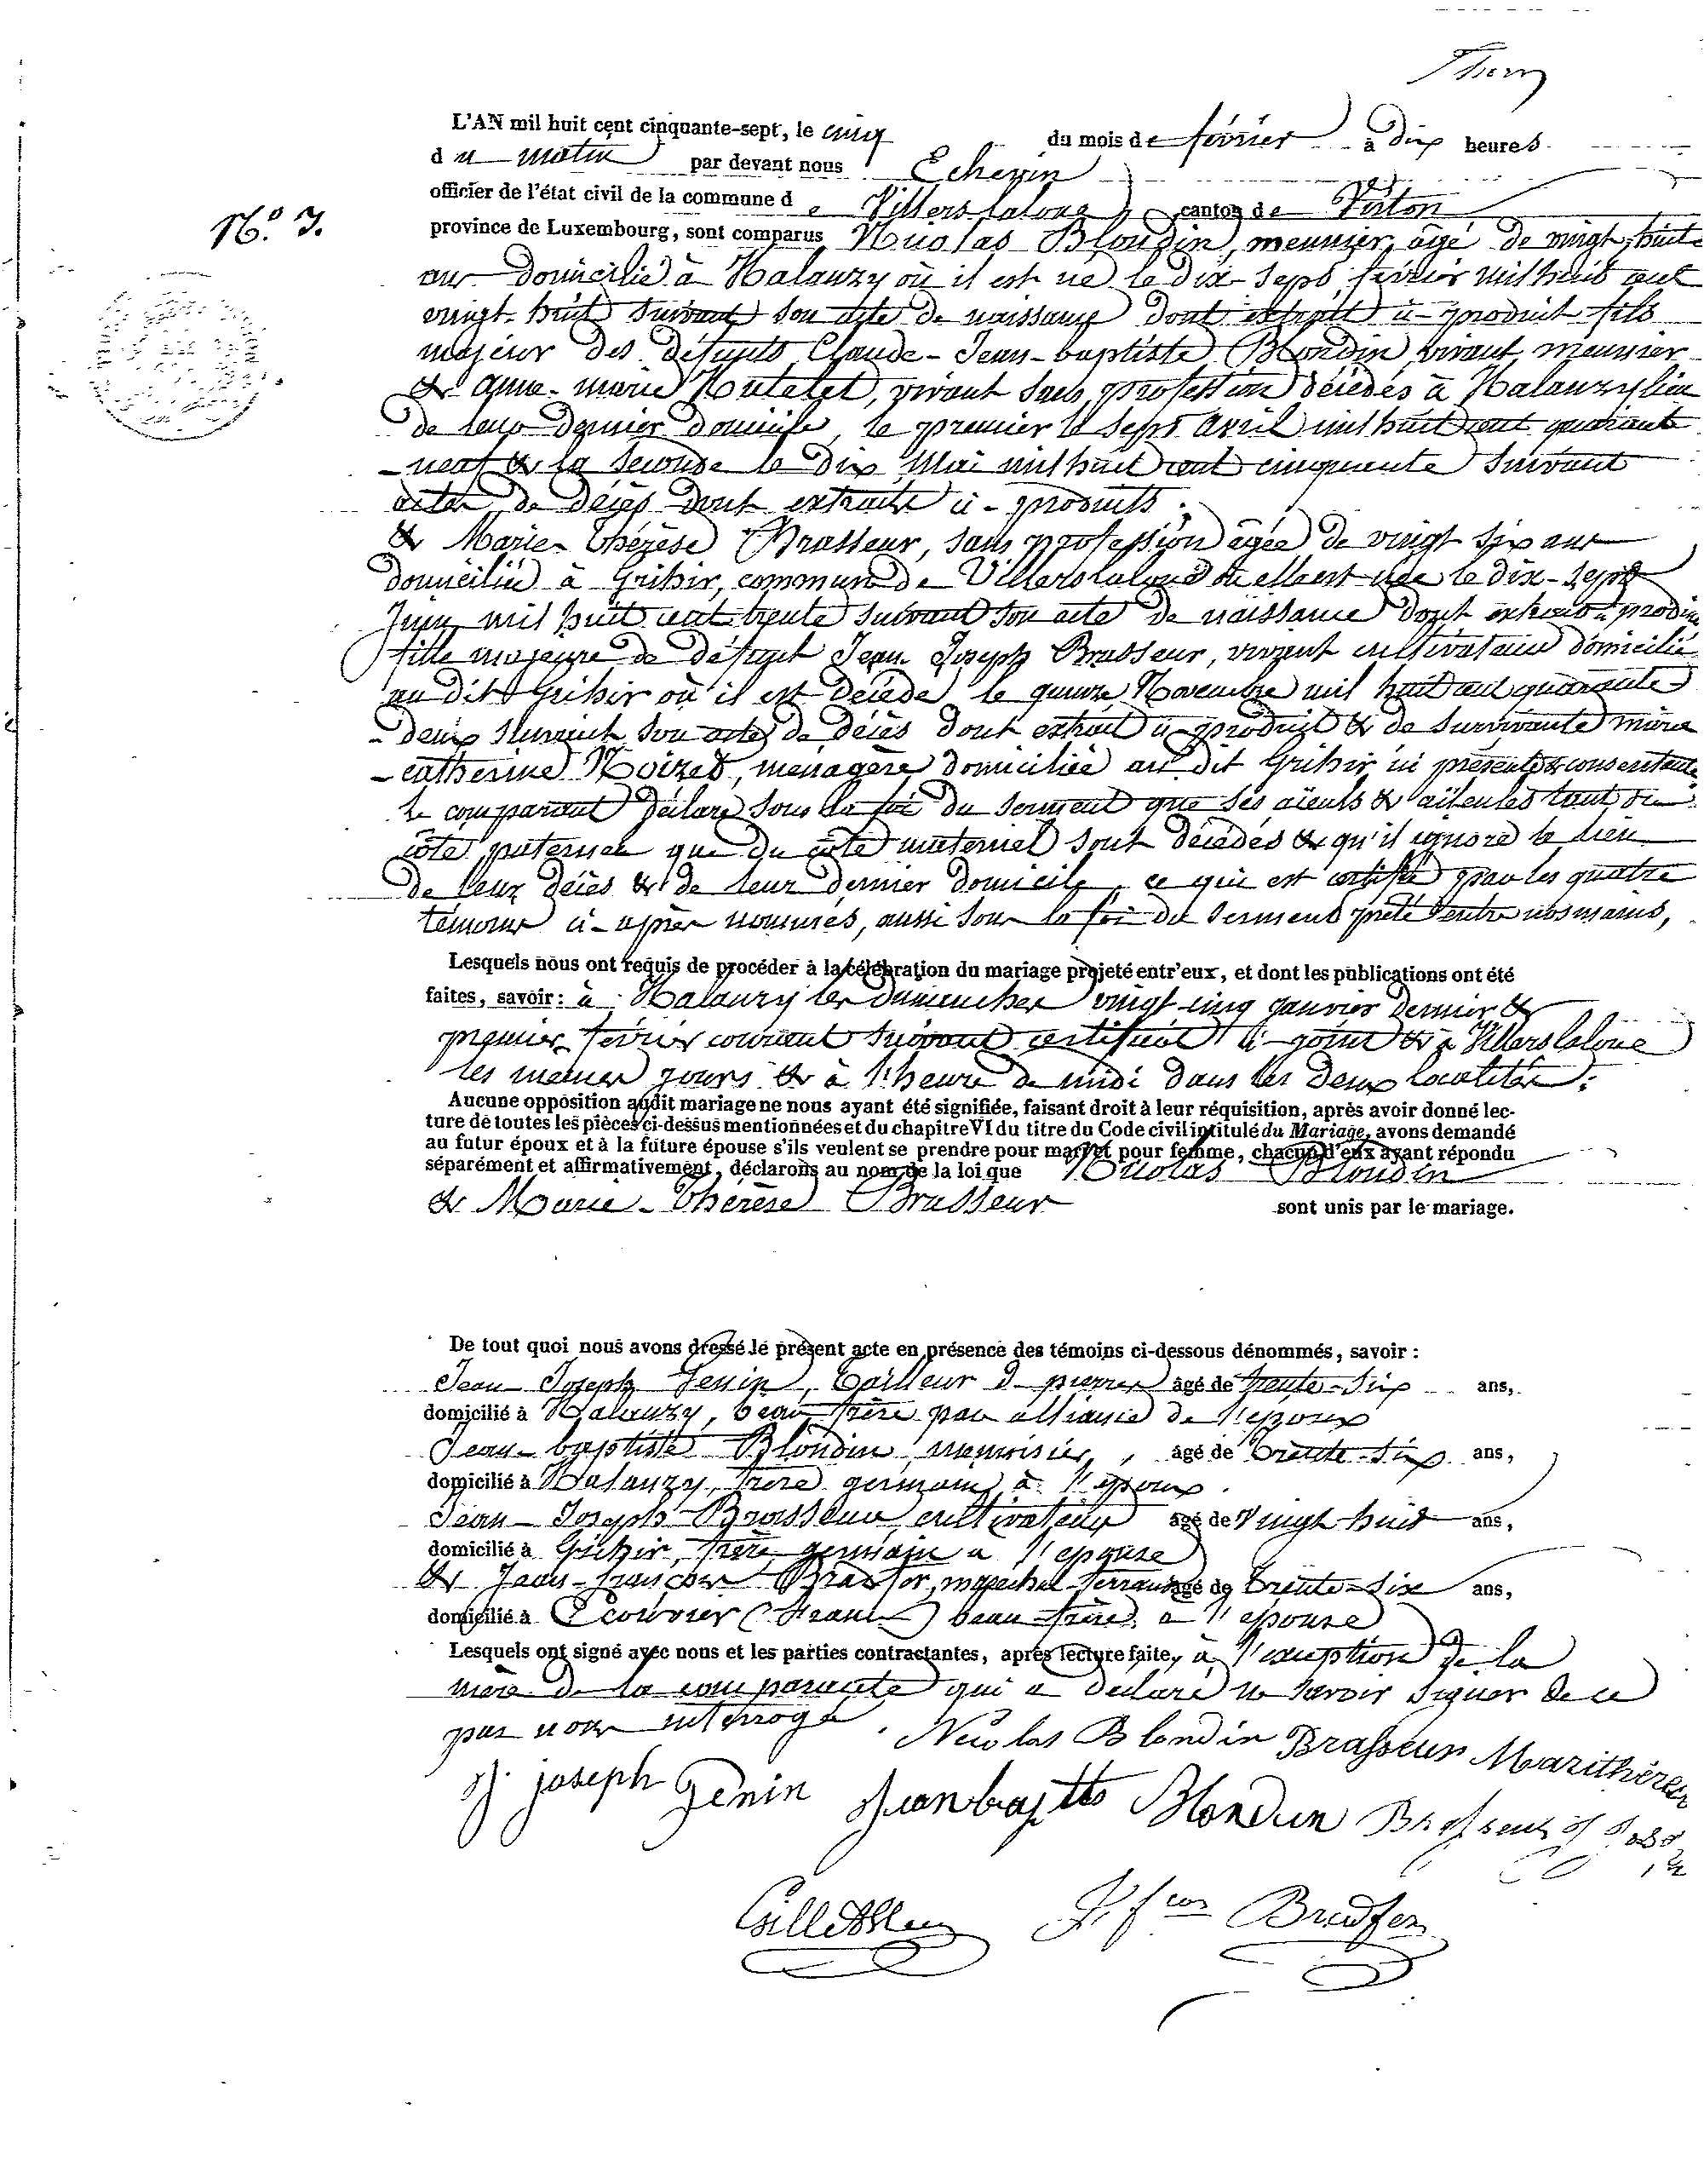 L'AN mil huit cent cinquante-sept, le cinq du mois de février à dix heures
du matin par devant nous Echevin
officier de l'état civil de la commune de Villers laloue, canton de Virton
N.º 7.
province de Luxembourg, sont comparus Nicolas Blondin, meunier, âgé de vingt-huit
ans domicilié à Halanzy où il est né le dix-sept février mil huit cent
vingt-huit suivant son acte de naissance dont extrait ci-produit fils
majeur des défunts Claude-Jean-baptiste Blondin, vivant meunier
& anne-marie Hutelet, vivant sans profession décédés à Halanzy lieu
de leur dernier domicile, le premier le sept avril mil huit cent quarante
-neuf & la seconde le dix Mai mil huit cent cinquante suivant
actes de décès dont extraits ci-produits.
& Marie-thérèse Brasseur, sans profession âgée de vingt six ans
domiciliée à Grihir, commune de Villers laloue où elle est née le dix-sept
Juin mil huit cent trente suivant son acte de naissance dont extrait ci produit
fille majeure de défunt Jean Joseph Brasseur, vivant cultivateur domicilié
au dit Grihir où il est décédé le quinze Novembre mil huit cent quarante
-deux suivant son acte de décès dont extrait ci-produit & de survivante mère
-catherine Noizet, ménagère domiciliée au dit Grihir ici présente & consentante
Le comparant déclare sous la foi du serment que ses aïeuls & aïeules tant du
côté paternel que du côté maternel sont décédés & qu'il ignore le lieu
de leur décès & de leur dernier domicile, ce qui est certifié par les quatre
témoins ci-après nommés, aussi sous la foi du serment prêté entre nos mains,
Lesquels nous ont requis de procéder à la célébration du mariage projeté entr'eux, et dont les publications ont été
faites, savoir: à Halanzy les dimanches vingt cinq janvier dernier &
premier février courant suivant certificat ci-joint & à Villers laloue
les mêmes jours & à l'heure de midi dans les deux localités.
Aucune opposition audit mariage ne nous ayant été signifiée, faisant droit à leur réquisition, après avoir donné lec-
ture de toutes les pièces ci-dessus mentionnées et du chapitre VI du titre du Code civil intitulé du Mariage, avons demandé
au futur époux et à la future épouse s'ils veulent se prendre pour mari et pour femme, chacun d'eux ayant répondu
séparément et affirmativement, déclarons au nom de la loi que Nicolas Blondin
& Marie-thérèse Brasseur sont unis par le mariage.
De tout quoi nous avons dressé le présent acte en présence des témoins ci-dessous dénommés, savoir:
Jean-Joseph Jenin, tailleur d pierres âgé de trente-six ans,
domicilié à Halanzy, beau frère par alliance de l'époux
Jean-baptiste Blondin, menuisier, âgé de trente-six ans,
domicilié à Halanzy, frère germain à l'époux.
Jean-Joseph Brasseur, cultivateur âgé de vingt huit ans,
domicilié à Grihir, frère germain à l'épouse
& Jean-françois Bradfer, maréchal-ferrant âgé de trente-six ans,
domicilié à Ecouvier (France) beau-frère à l'épouse
Lesquels ont signé avec nous et les parties contractantes, après lecture faite, à l'exception de la
mère de la comparante qui a déclaré ne savoir signer de ce
par nous interrogé.
Nicolas Blondin Brasseur Marithérèse
J. joseph Jenin Jeanbaptte Blondin Brasseur J Jos
J. fcois Bradfer